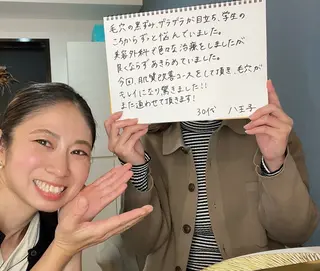 毛穴の黒ずみ、ブツブツが目立ち、学生の
ころからずっと悩んでいました。
美容外科で色々な治療をしましたが
良くならずあきらめていました。
今回、肌質改善コースをして頂き、毛穴が
キレイになり驚きました!!
また通わせて頂きます!
30代 八王子